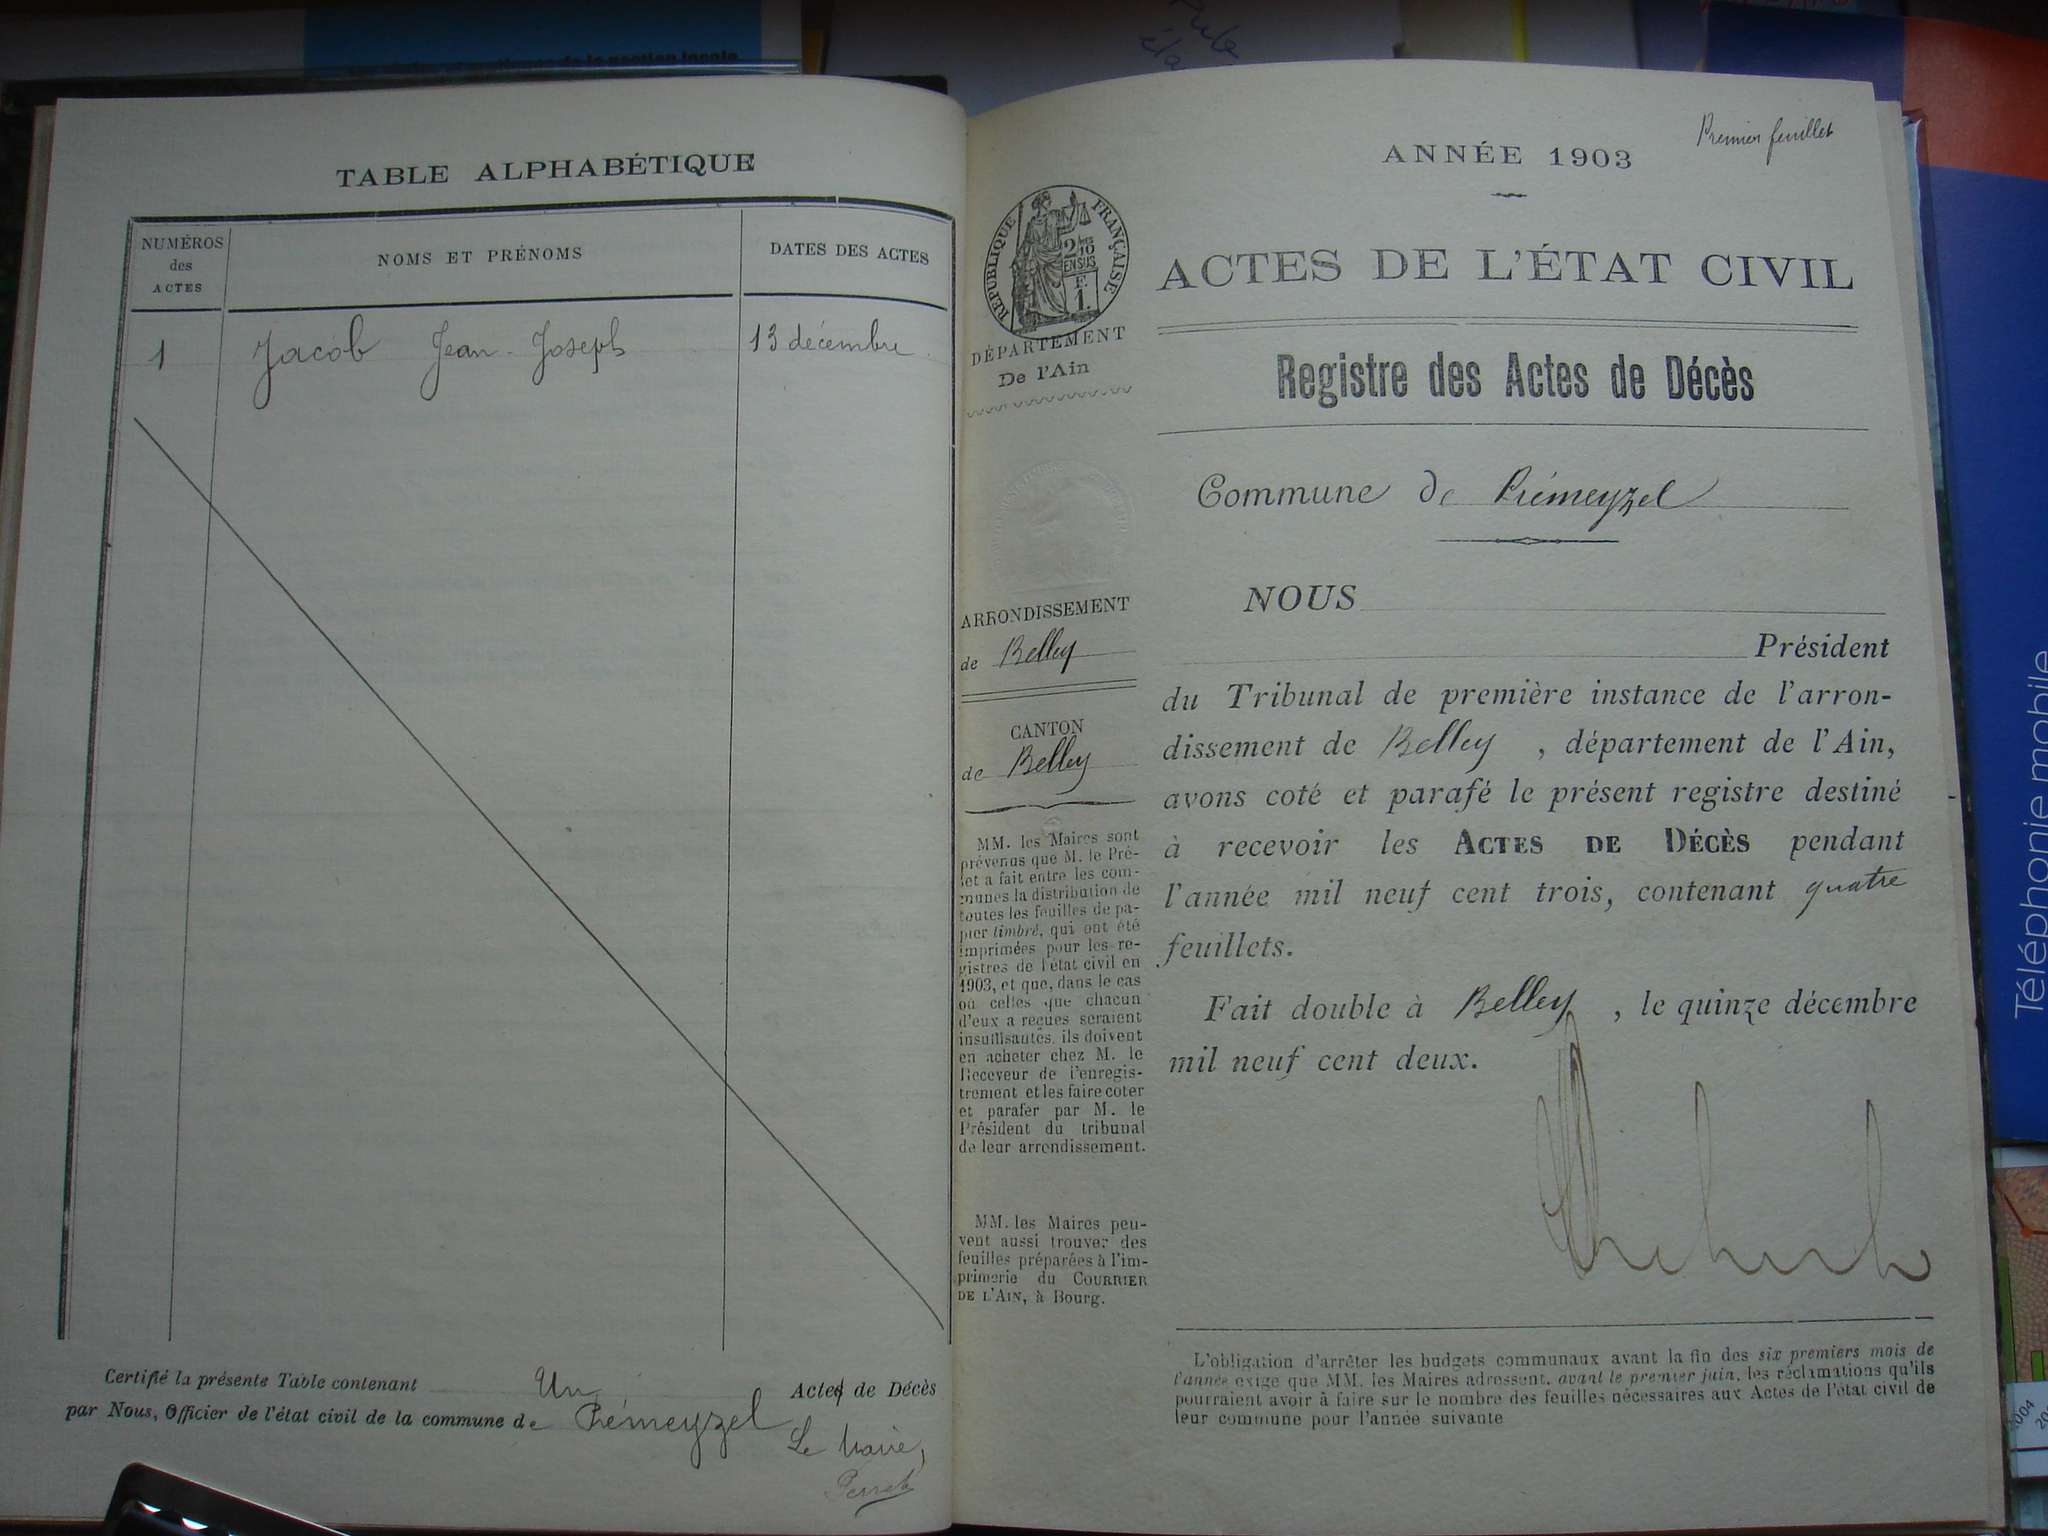 de la gestion locale
TABLE ALPHABÉTIQUE
NUMÉROS
des
ACTES
NOMS ET PRÉNOMS
DATES DES ACTES
1 Jacob Jean-Joseph 13 décembre
Certifié la présente Table contenant Un Acte de Décès
par Nous, Officier de l'état civil de la commune de Prémeyzel
Le Maire,
Premier feuillet
ANNÉE 1903
RÉPUBLIQUE FRANÇAISE
2/10
EN SUS
F.
1.
DÉPARTEMENT
De l'Ain
ARRONDISSEMENT
de Belley
CANTON
de Belley
MM. les Maires sont
prévenus que M. le Pré-
fet a fait entre les com-
munes la distribution de
toutes les feuilles de pa-
pier timbré, qui ont été
imprimées pour les re-
gistres de l'état civil en
1903, et que, dans le cas
où celles que chacun
d'eux a reçues seraient
insuffisantes, ils doivent
en acheter chez M. le
Receveur de l'enregis-
trement et les faire coter
et parafer par M. le
Président du tribunal
de leur arrondissement.
MM. les Maires peu-
vent aussi trouver des
feuilles préparées à l'im-
primerie du COURRIER
DE L'AIN, à Bourg.
ACTES DE L'ÉTAT CIVIL
Registre des Actes de Décès
Commune de Prémeyzel
NOUS
Président
du Tribunal de première instance de l'arron-
dissement de Belley, département de l'Ain,
avons coté et parafé le présent registre destiné
à recevoir les ACTES DE DÉCÈS pendant
l'année mil neuf cent trois, contenant quatre
feuillets.
Fait double à Belley, le quinze décembre
mil neuf cent deux.
L'obligation d'arrêter les budgets communaux avant la fin des six premiers mois de
l'année exige que MM. les Maires adressent, avant le premier juin, les réclamations qu'ils
pourraient avoir à faire sur le nombre des feuilles nécessaires aux Actes de l'état civil de
leur commune pour l'année suivante
Téléphonie mobile
2004